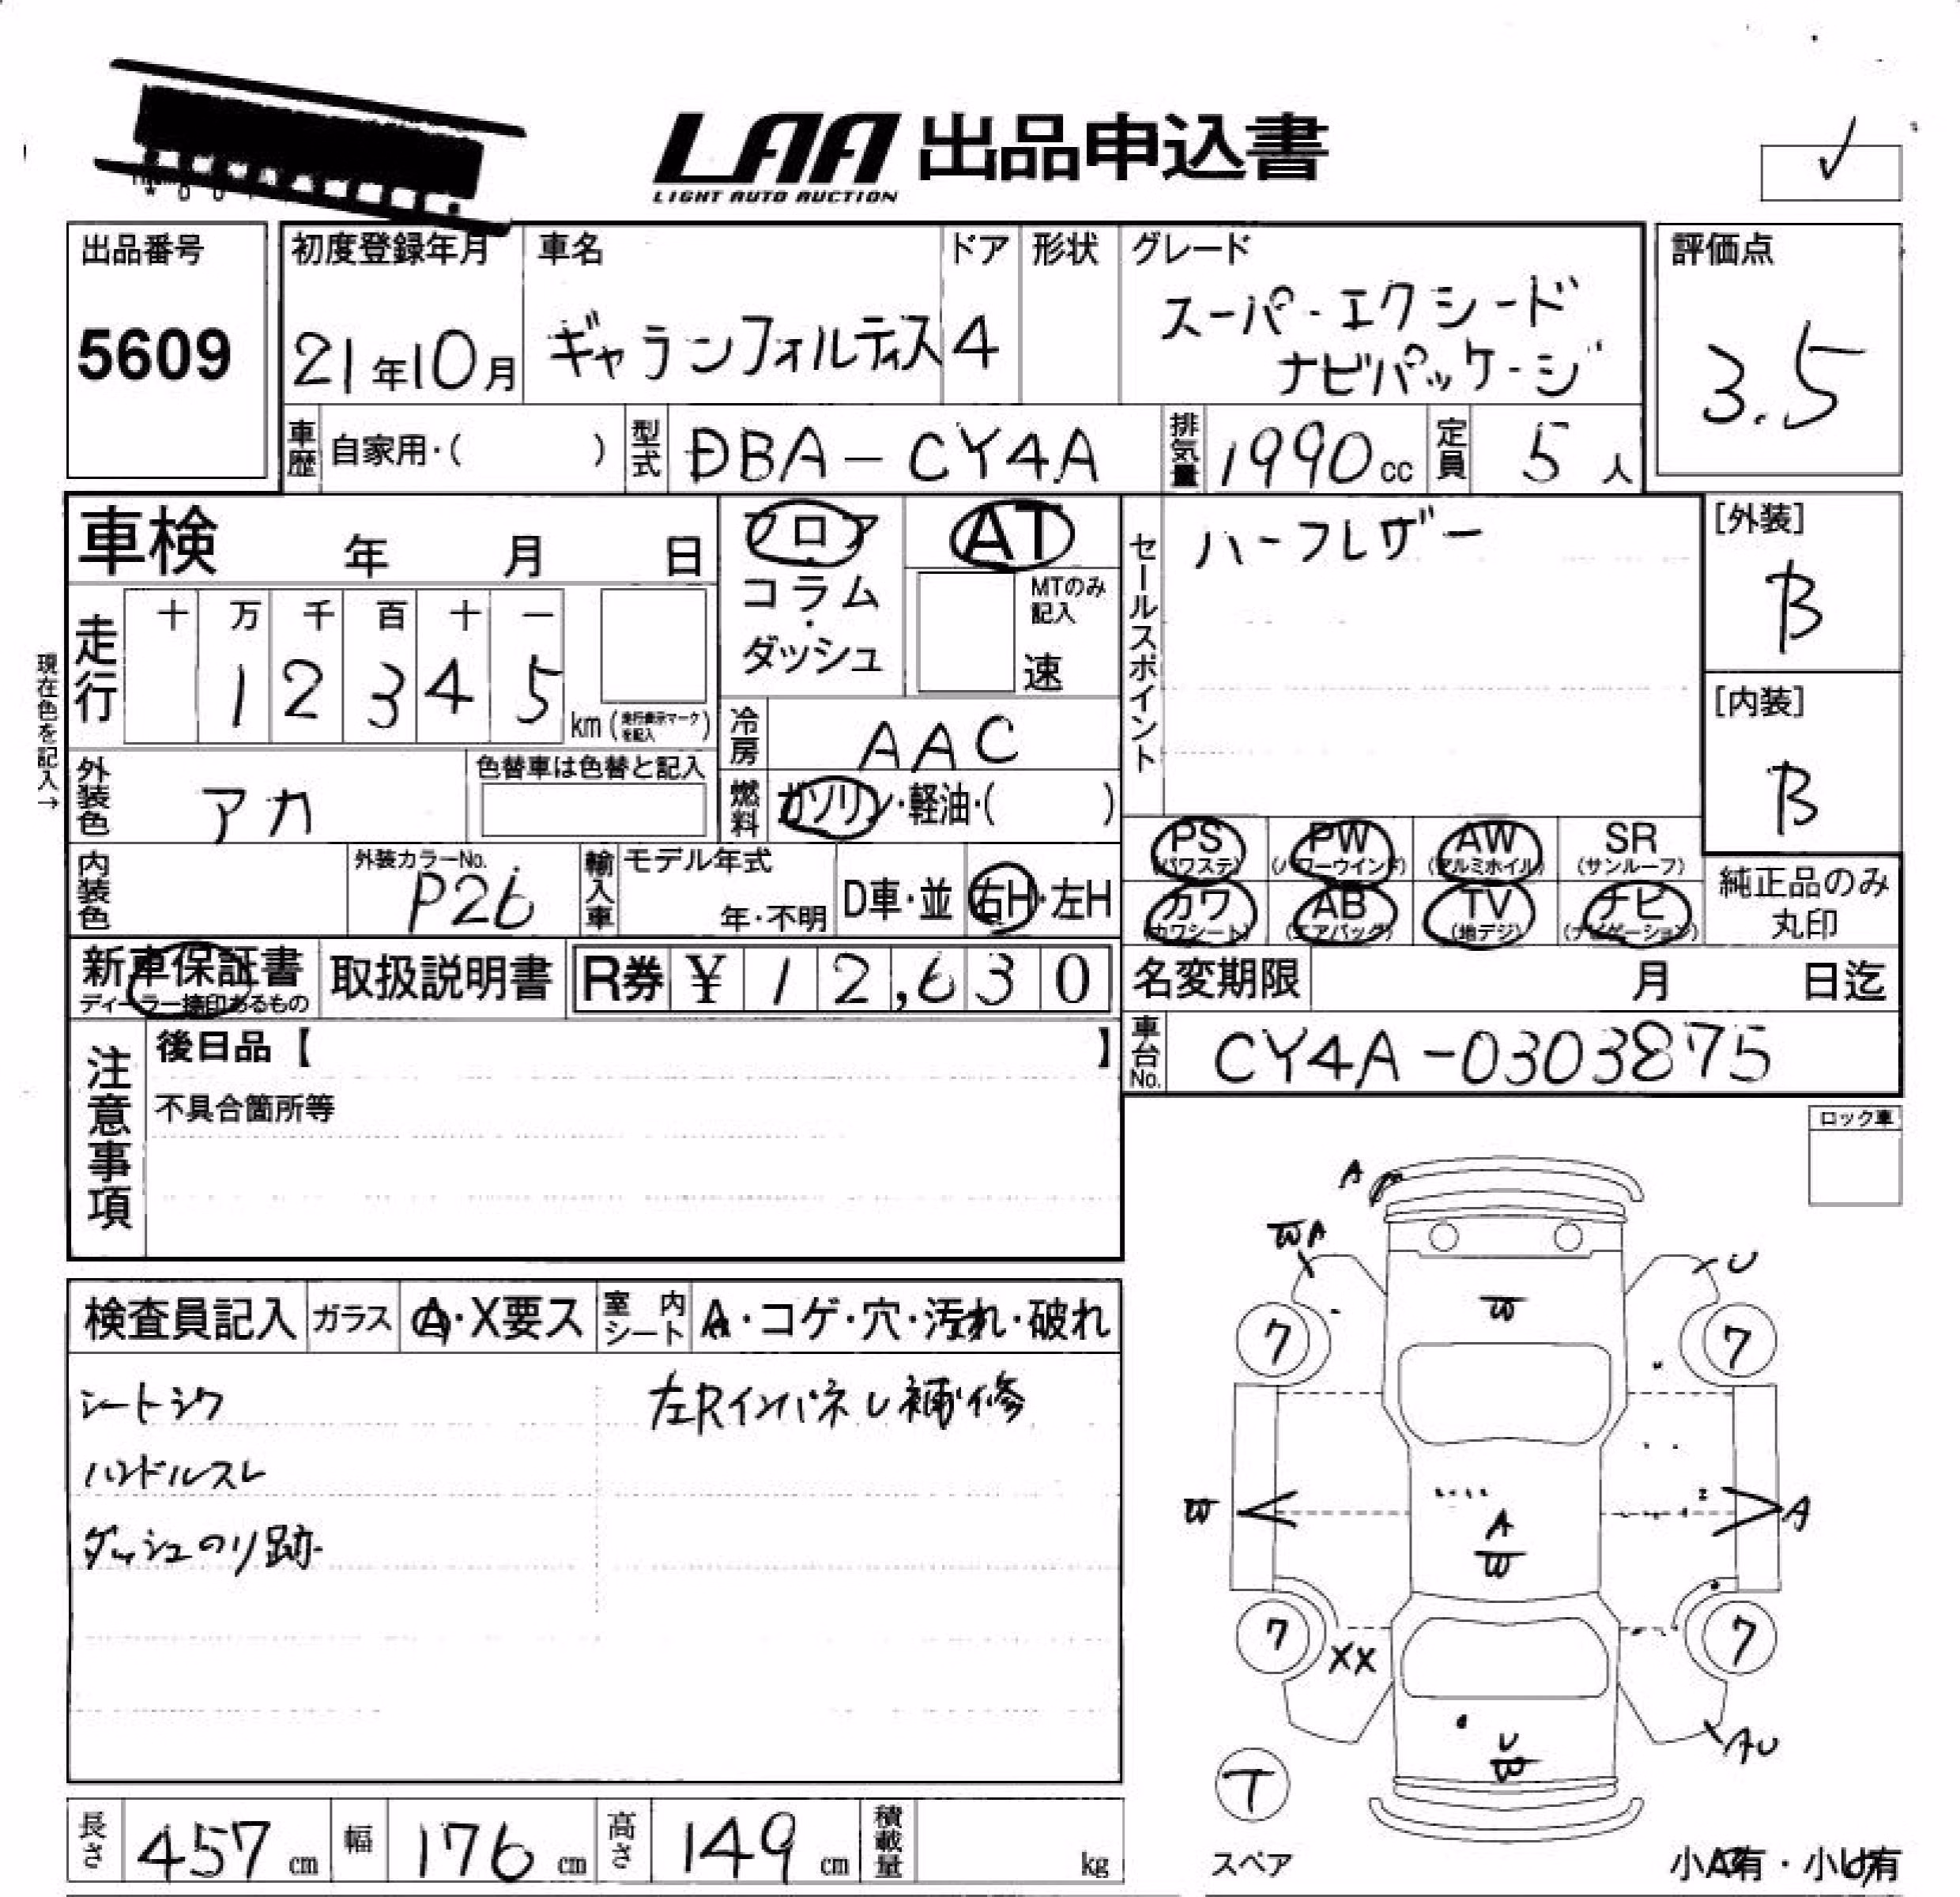 LAA 出品申込書
LIGHT AUTO AUCTION
出品番号
5609
初度登録年月
21年10月
車名
ギャランフォルティス
ドア
4
形状
グレード
スーパーエクシード
ナビパッケージ
評価点
3.5
車歴
自家用・( )
型式
DBA-CY4A
排気量
1990cc
定員
5人
車検 年 月 日
フロア
・
コラム
・
ダッシュ
AT
MTのみ
記入
速
セールスポイント
ハーフレザー
[外装]
B
[内装]
B
現在色を記入→
走行
十 万 千 百 十 一
1 2 3 4 5
km(走行表示マークを記入)
冷房
AAC
燃料
ガソリン・軽油・( )
外装色
アカ
色替車は色替と記入
PS
(パワステ)
PW
(パワーウインド)
AW
(アルミホイル)
SR
(サンルーフ)
カワ
(カワシート)
AB
(エアバッグ)
TV
(地デジ)
ナビ
(ナビゲーション)
純正品のみ
丸印
内装色
外装カラーNo.
P26
輸入車
モデル年式
年・不明
D車・並
右H・左H
新車保証書
取扱説明書
R券 ¥ 12,630
名変期限 月 日迄
車台No.
CY4A-0303875
注意事項
後日品【 】
不具合箇所等
ロック車
検査員記入
ガラス
A・X要ス
室内
シート
A・コゲ・穴・汚れ・破れ
シートシワ
ハンドルスレ
ダッシュのり跡
左Rインパネル補修
A
WA
U
W
7
7
W
A
A
W
7
7
XX
U
W
AU
T
スペア
小A有・小U有
長さ
457cm
幅
176cm
高さ
149cm
積載量
kg